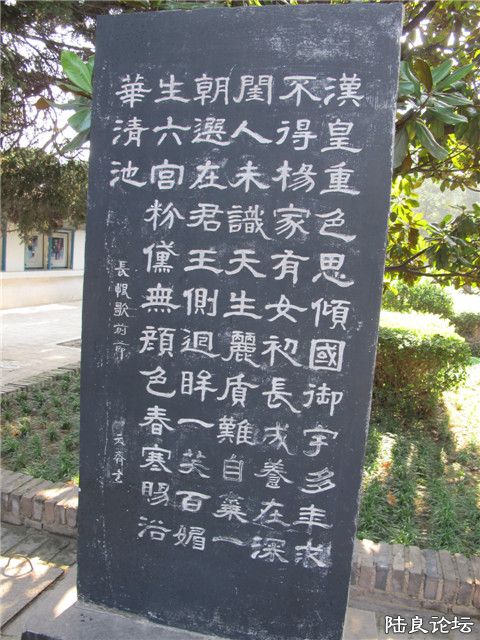 漢皇重色思傾國御宇多年求
不得楊家有女初長成養在深
閨人未識天生麗質難自棄一
朝選在君王側迴眸一笑百媚
生六宮粉黛無顔色春寒賜浴
華清池
長恨歌前節
陆良论坛